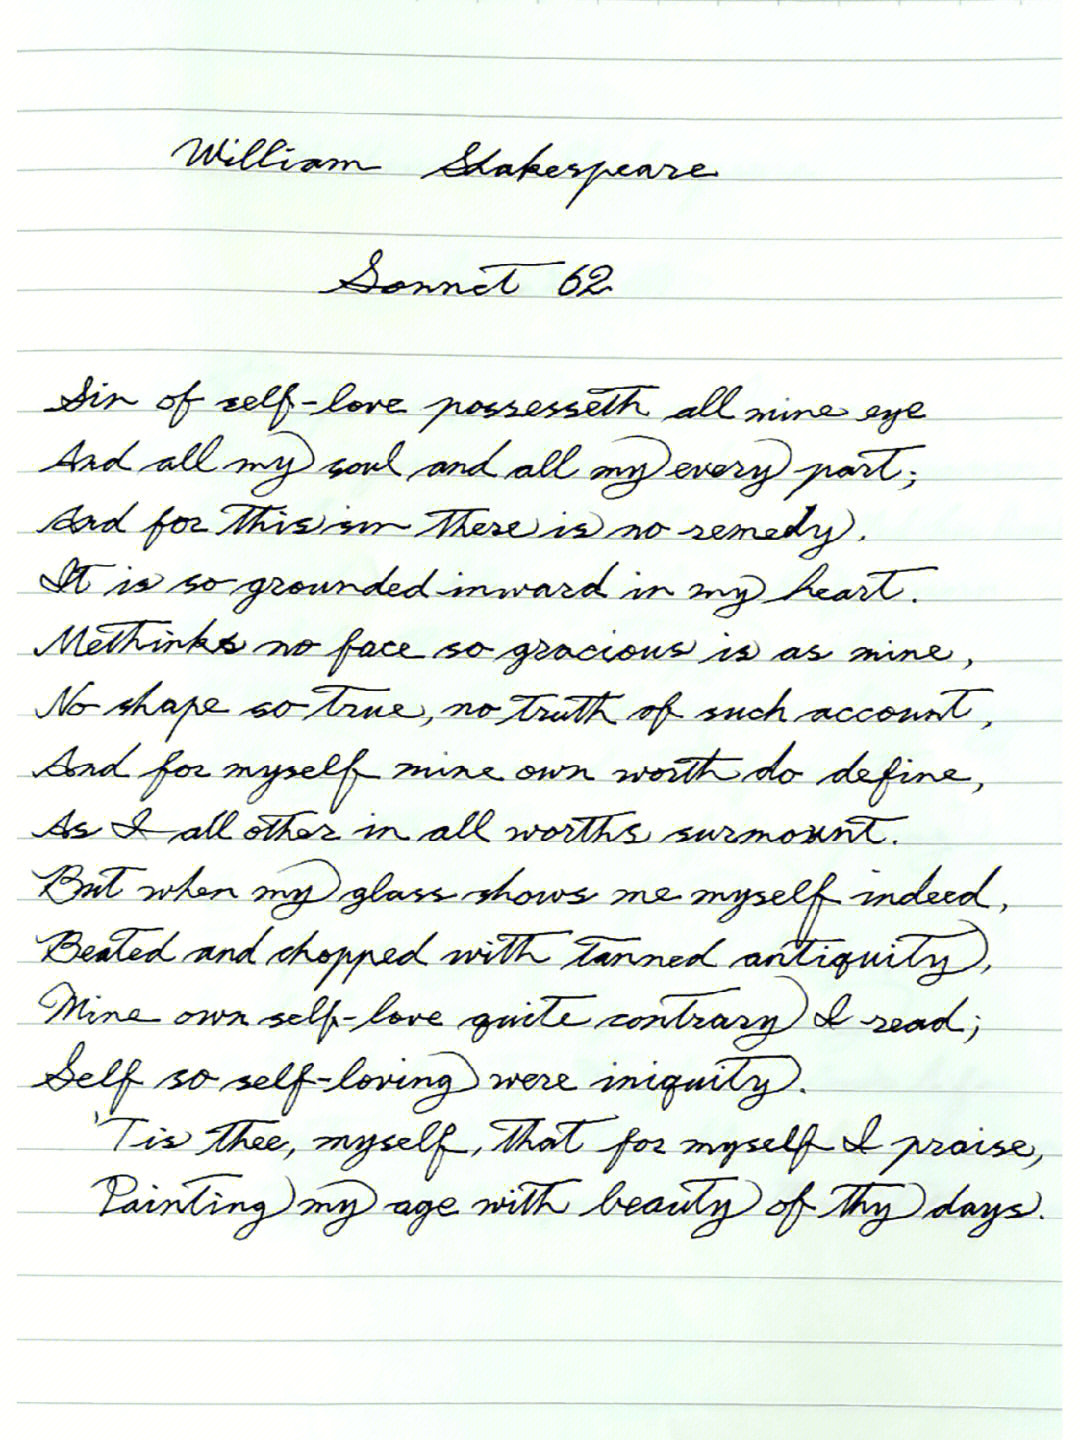 William Shakespeare
Sonnet 62
Sin of self-love possesseth all mine eye
And all my soul and all my every part;
And for this sin there is no remedy.
It is so grounded inward in my heart.
Methinks no face so gracious is as mine,
No shape so true, no truth of such account,
And for myself mine own worth do define,
As I all other in all worths surmount.
But when my glass shows me myself indeed,
Beated and chopped with tanned antiquity,
Mine own self-love quite contrary I read;
Self so self-loving were iniquity.
'Tis thee, myself, that for myself I praise,
Painting my age with beauty of thy days.